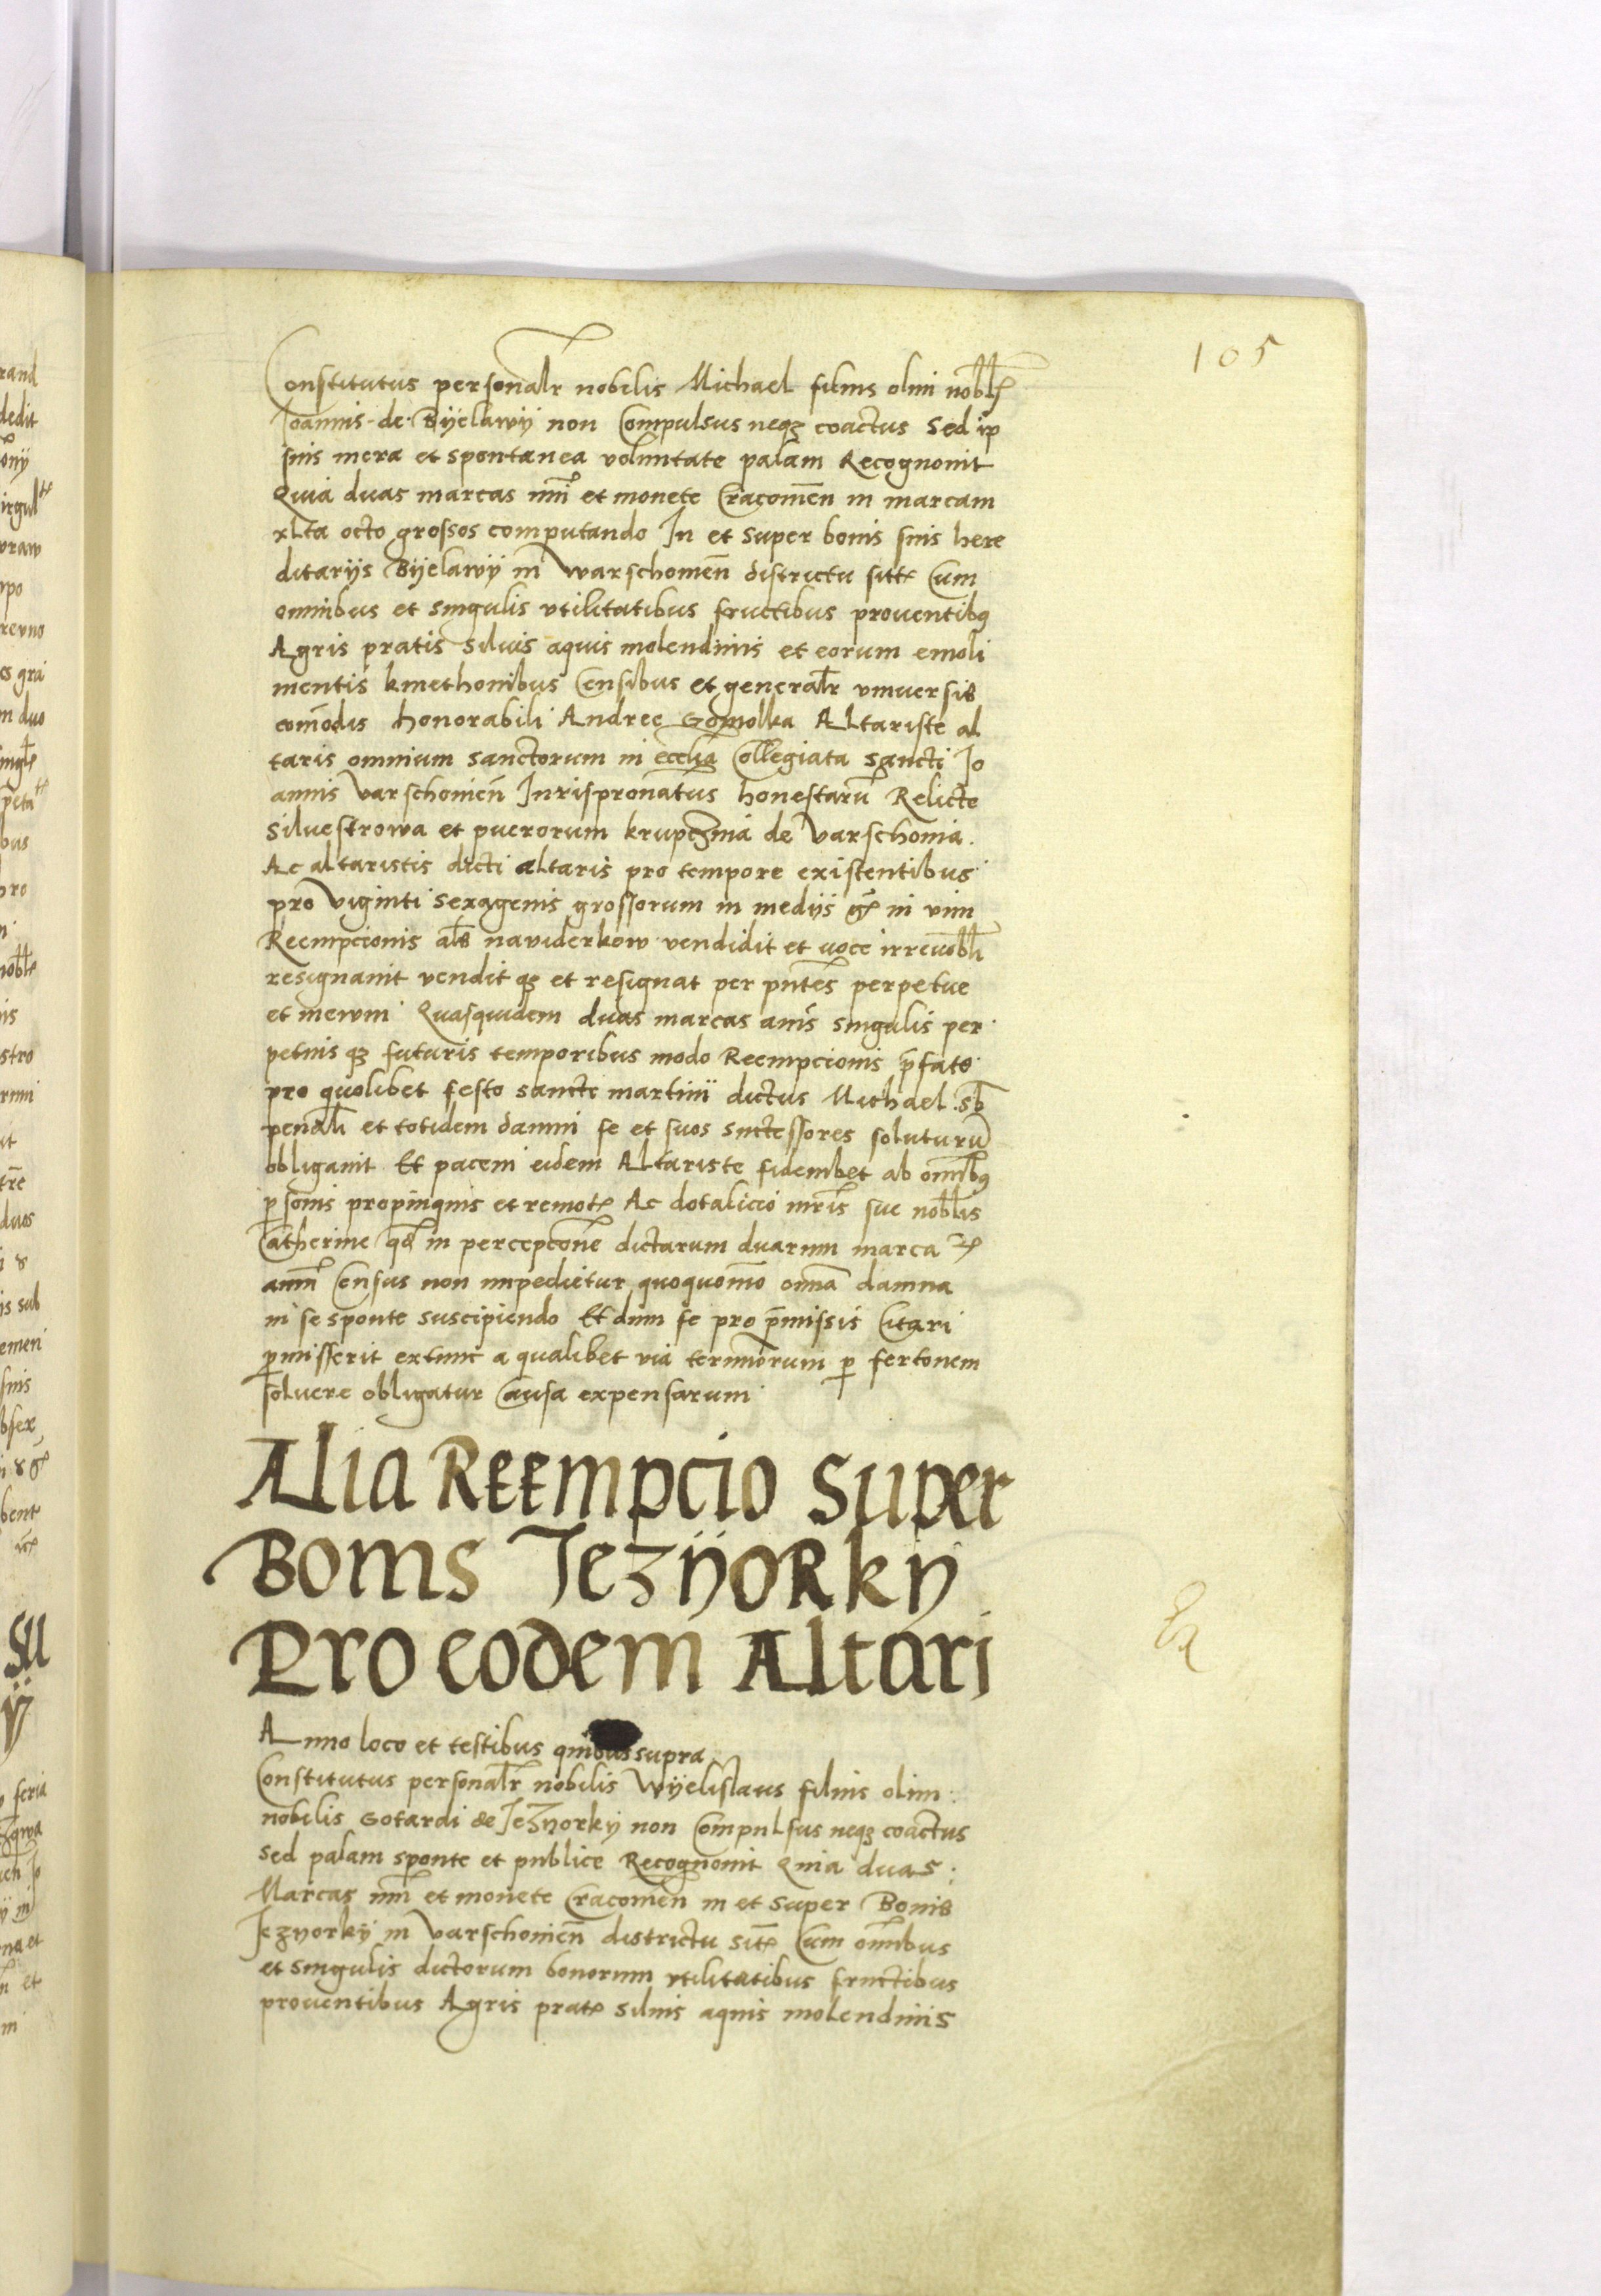 105
Constitutus personalr nobilis Michael filius olim nobl
Joannis de Byelawy non Compulsus neqz coactus Sed ip
sius mera et spontanea voluntate palam Recognouit
Quia duas marcas nui et monete Cracouien in marcam
xlta octo grossos computando In et super bonis suis here
ditarijs Byelawy in Warschouien districtu sitt Cum
omnibus et singulis vtilitatibus fructibus prouentibq
Agris pratis siluis aquis molendinis et eorum emoli
mentis kmethonibus Censibus et generalr vniuersis
comodis honorabili Andree Gomolka Altariste al
taris omnium sanctorum in ecclia Collegiata sancti Jo
annis Varschouien Jurispronatus honestaru Relicte
Siluestrowa et puerorum krupczina de Varschouia
Ac altaristis dicti altaris pro tempore existentibus
pro Viginti sexagenis grossorum in medijs gr in vim
Reempcionis als naviderkow vendidit et voce irreuobli
resignauit vendit qz et resignat per pntes perpetue
et meum Quasquidem duas marcas anis singulis per
petuis qz futuris temporibus modo Reempcionis pfato
pro quolibet festo sancti martini dictus Michael sb
penali et totidem damni se et suos successores soluturu
obligauit Et pacem eidem Altariste fidembet ab omibq
psonis propinquis et remot Ac dotalicio mris sue noblis
Catherine qd in percepcone dictarum duarum marca
anui Census non impedietur quoquomo omia damna
in se sponte suscipiendo Et dum se pro pmissis Citari
pmisserit extunc a qualibet via terminorum p fertonem
soluere obligatur Causa expensarum
Alia Reempcio super
Bonis Jezyorky
Pro eodem Altari
Anno loco et testibus quibus supra
Constitutus personalr nobilis Wyelislaus filius olim
nobilis Gotardi de Jezyorky non Compulsus neqz coactus
sed palam sponte et publice Recognouit Quia duas
Marcas nui et monete Cracouien in et super Bonis
Jezyorky in Varschouien districtu sitt Cum omibus
et singulis dictorum bonorum vtilitatibus fructibus
prouentibus Agris prat siluis aquis molendinis